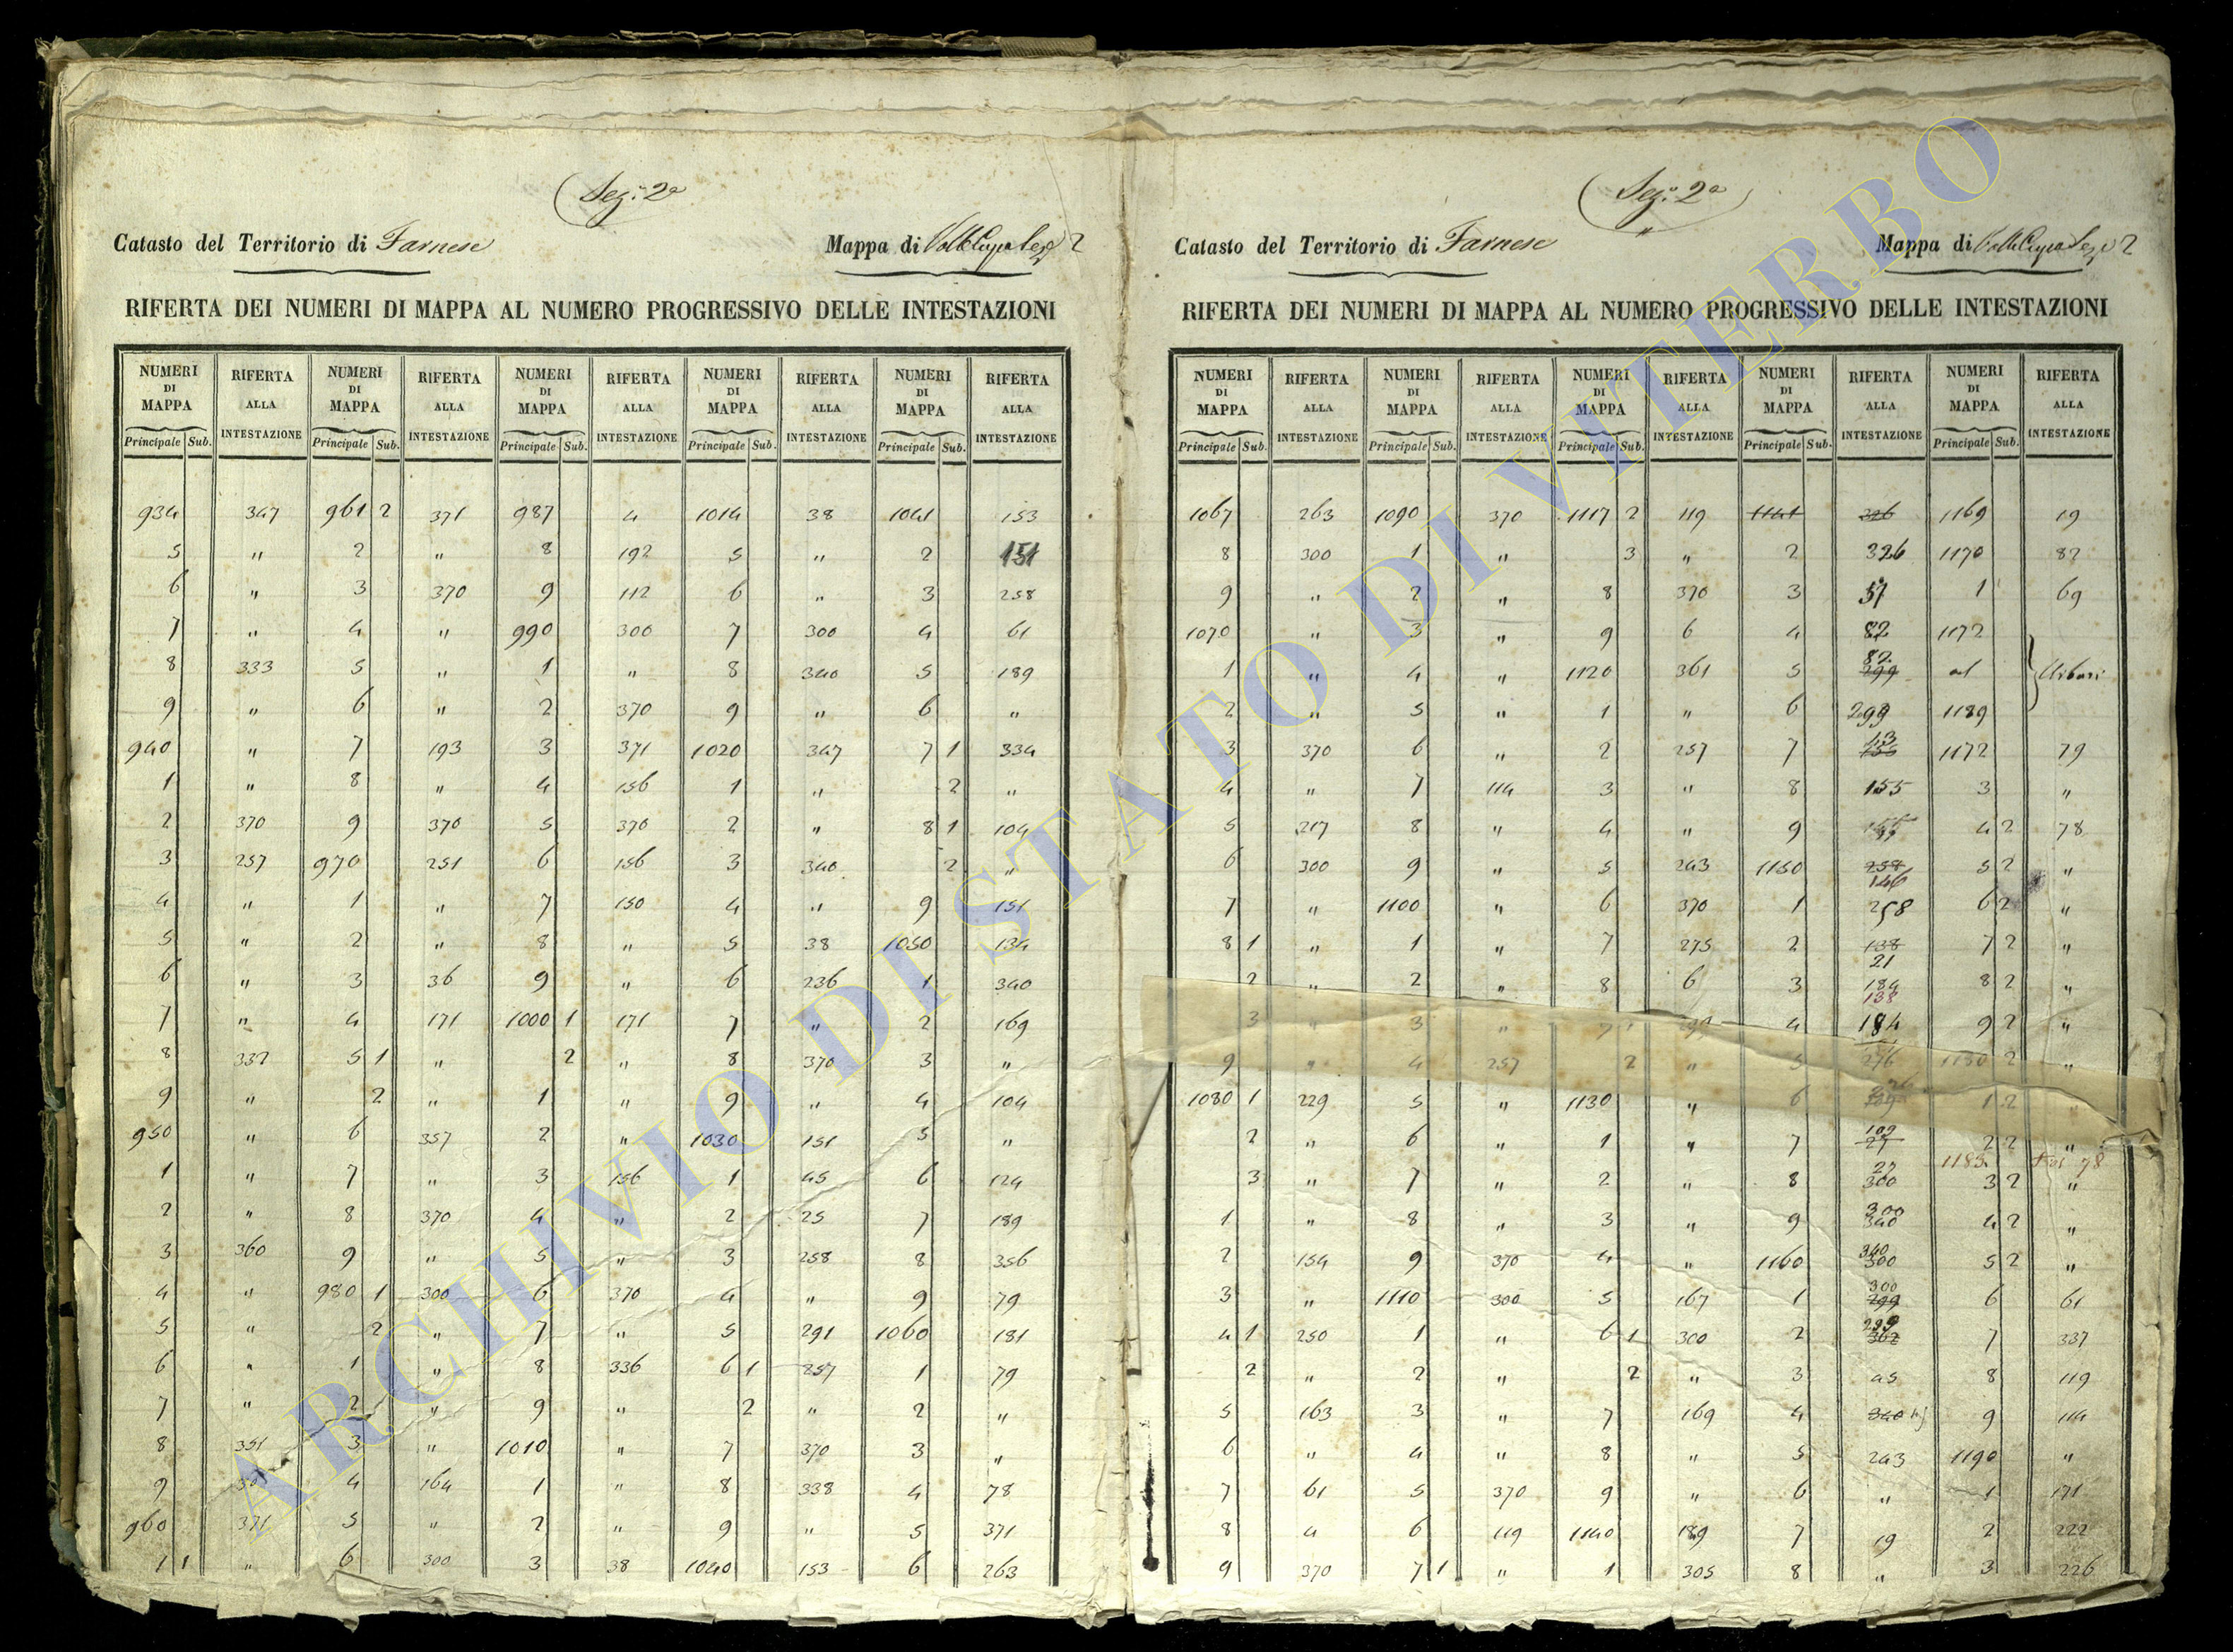 Sez: 2a
Catasto del Territorio di Farnese Mappa di Valle Cupa Sez 2
RIFERTA DEI NUMERI DI MAPPA AL NUMERO PROGRESSIVO DELLE INTESTAZIONI
NUMERI RIFERTA NUMERI RIFERTA NUMERI RIFERTA NUMERI RIFERTA NUMERI RIFERTA
DI DI DI DI DI
MAPPA ALLA MAPPA ALLA MAPPA ALLA MAPPA ALLA MAPPA ALLA
Principale Sub. INTESTAZIONE Principale Sub. INTESTAZIONE Principale Sub. INTESTAZIONE Principale Sub. INTESTAZIONE Principale Sub. INTESTAZIONE
934 347 961 2 371 987 4 1014 38 1041 153
5 " 2 " 8 192 5 " 2 151
6 " 3 370 9 112 6 " 3 258
7 " 4 " 990 300 7 300 4 61
8 333 5 " 1 " 8 340 5 189
9 " 6 " 2 370 9 " 6 "
940 " 7 193 3 371 1020 347 7 1 334
1 " 8 " 4 156 1 " 2 "
2 370 9 370 5 370 2 " 8 1 104
3 257 970 251 6 156 3 340 2 "
4 " 1 " 7 150 4 " 9 151
5 " 2 " 8 " 5 38 1050 134
6 " 3 36 9 " 6 236 1 340
7 " 4 171 1000 1 171 7 " 2 169
8 332 5 1 " 2 " 8 370 3 "
9 " 2 " 1 " 9 " 4 104
950 " 6 357 2 " 1030 151 5 "
1 " 7 " 3 156 1 45 6 124
2 " 8 370 4 " 2 25 7 189
3 360 9 " 5 " 3 258 8 356
4 " 980 1 300 6 370 4 " 9 79
5 " 2 " 7 " 5 291 1060 181
6 " 1 " 8 336 6 1 257 1 79
7 " 2 " 9 " 2 " 2 "
8 351 3 " 1010 " 7 370 3 "
9 4 164 1 " 8 338 4 78
960 371 5 " 2 " 9 " 5 371
1 1 " 6 300 3 38 1040 153 6 263
Sez: 2a
Catasto del Territorio di Farnese Mappa di Valle Cupa Sez 2
RIFERTA DEI NUMERI DI MAPPA AL NUMERO PROGRESSIVO DELLE INTESTAZIONI
NUMERI RIFERTA NUMERI RIFERTA NUMERI RIFERTA NUMERI RIFERTA NUMERI RIFERTA
DI DI DI DI DI
MAPPA ALLA MAPPA ALLA MAPPA ALLA MAPPA ALLA MAPPA ALLA
Principale Sub. INTESTAZIONE Principale Sub. INTESTAZIONE Principale Sub. INTESTAZIONE Principale Sub. INTESTAZIONE Principale Sub. INTESTAZIONE
1067 263 1090 370 1117 2 119 1141 326 1169 19
8 300 1 " 3 " 2 326 1170 82
9 " 2 " 8 370 3 57 1 69
1070 " 3 " 9 6 4 82 1172
1 " 4 " 1120 361 5 82 299 al
2 " 5 " 1 " 6 299 1189
3 370 6 " 2 257 7 1172 79
4 " 7 114 3 " 8 155 3 "
5 217 8 " 4 " 9 155 4 2 78
6 300 9 " 5 243 1150 258 146 5 2 "
7 " 1100 " 6 370 1 258 6 2 "
8 1 " 1 " 7 275 2 138 21 7 2 "
2 " 2 " 8 6 3 184 138 8 2 "
3 " 3 " 4 184 9 2 "
9 " 4 257 2 " 5 276 1180 2 "
1080 1 229 5 " 1130 " 6 1 2 "
2 " 6 " 1 " 7 109 27 2 2 "
1183 78
3 " 7 " 2 " 8 27 300 3 2 "
1 " 8 " 3 " 9 300 340 4 2 "
2 154 9 370 4 " 1160 340 300 5 2 "
3 " 1110 300 5 167 1 300 299 6 61
4 1 250 1 " 6 1 300 2 299 362 7 337
2 " 2 " 2 " 3 45 8 119
5 163 3 " 7 169 4 340 9 114
6 " 4 " 8 " 5 243 1190 "
7 61 5 370 9 " 6 " 1 171
8 4 6 119 1140 189 7 19 2 222
9 370 7 1 " 1 305 8 " 3 226
ARCHIVIO DI STATO DI VITERBO